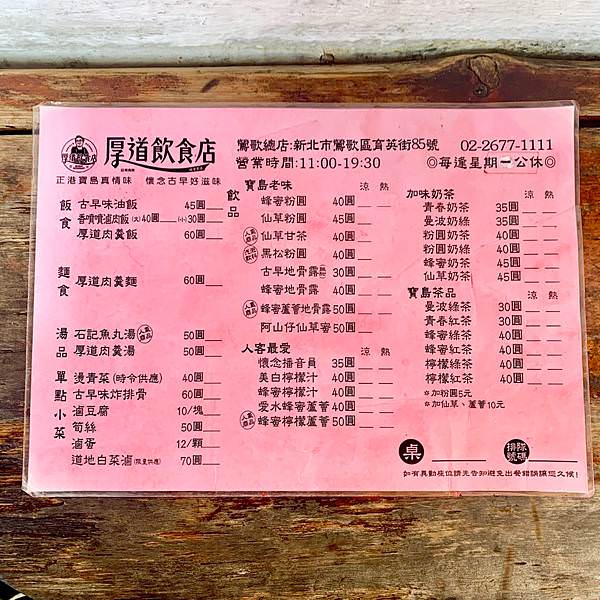 厚道飲食店
正港寶島真情味　懷念古早好滋味
鶯歌總店:新北市鶯歌區育英街85號　02-2677-1111
營業時間:11:00-19:30　◎每逢星期二公休◎
飯食
古早味油飯　45圓
香噴噴滷肉飯(大)40圓　(小)30圓
厚道肉羹飯　60圓
麵食
厚道肉羹麵　60圓
湯品
石記魚丸湯　人氣商品　50圓
厚道肉羹湯　50圓
單點小菜
燙青菜(時令供應)　40圓
古早味炸排骨　60圓
滷豆腐　10/塊
筍絲　50圓
滷蛋　12/顆
道地白菜滷(限量供應)　70圓
飲品
寶島老味　涼　熱
蜂蜜粉圓　40圓
仙草粉圓　45圓
人氣商品　仙草甘茶　40圓
黑松粉圓　40圓
古早地骨露　30圓
蜂蜜地骨露　40圓
人氣商品　蜂蜜蘆薈地骨露50圓
阿山仔仙草蜜　50圓
人客最愛　涼　熱
懷念播音員　35圓
美白檸檬汁　40圓
蜂蜜檸檬汁　40圓
愛水蜂蜜蘆薈　40圓
人氣商品　蜂蜜檸檬蘆薈　50圓
加味奶茶　涼　熱
青春奶茶　35圓
曼波奶綠　35圓
粉圓奶茶　40圓
粉圓奶綠　40圓
蜂蜜奶茶　45圓
仙草奶茶　45圓
寶島茶品　涼　熱
曼波綠茶　30圓
青春紅茶　30圓
蜂蜜綠茶　40圓
蜂蜜紅茶　40圓
檸檬綠茶　40圓
檸檬紅茶　40圓
☆加粉圓5元
☆加仙草、蘆薈10元
桌　排隊號碼
如有異動座位請先告知避免出餐錯誤讓您久候!